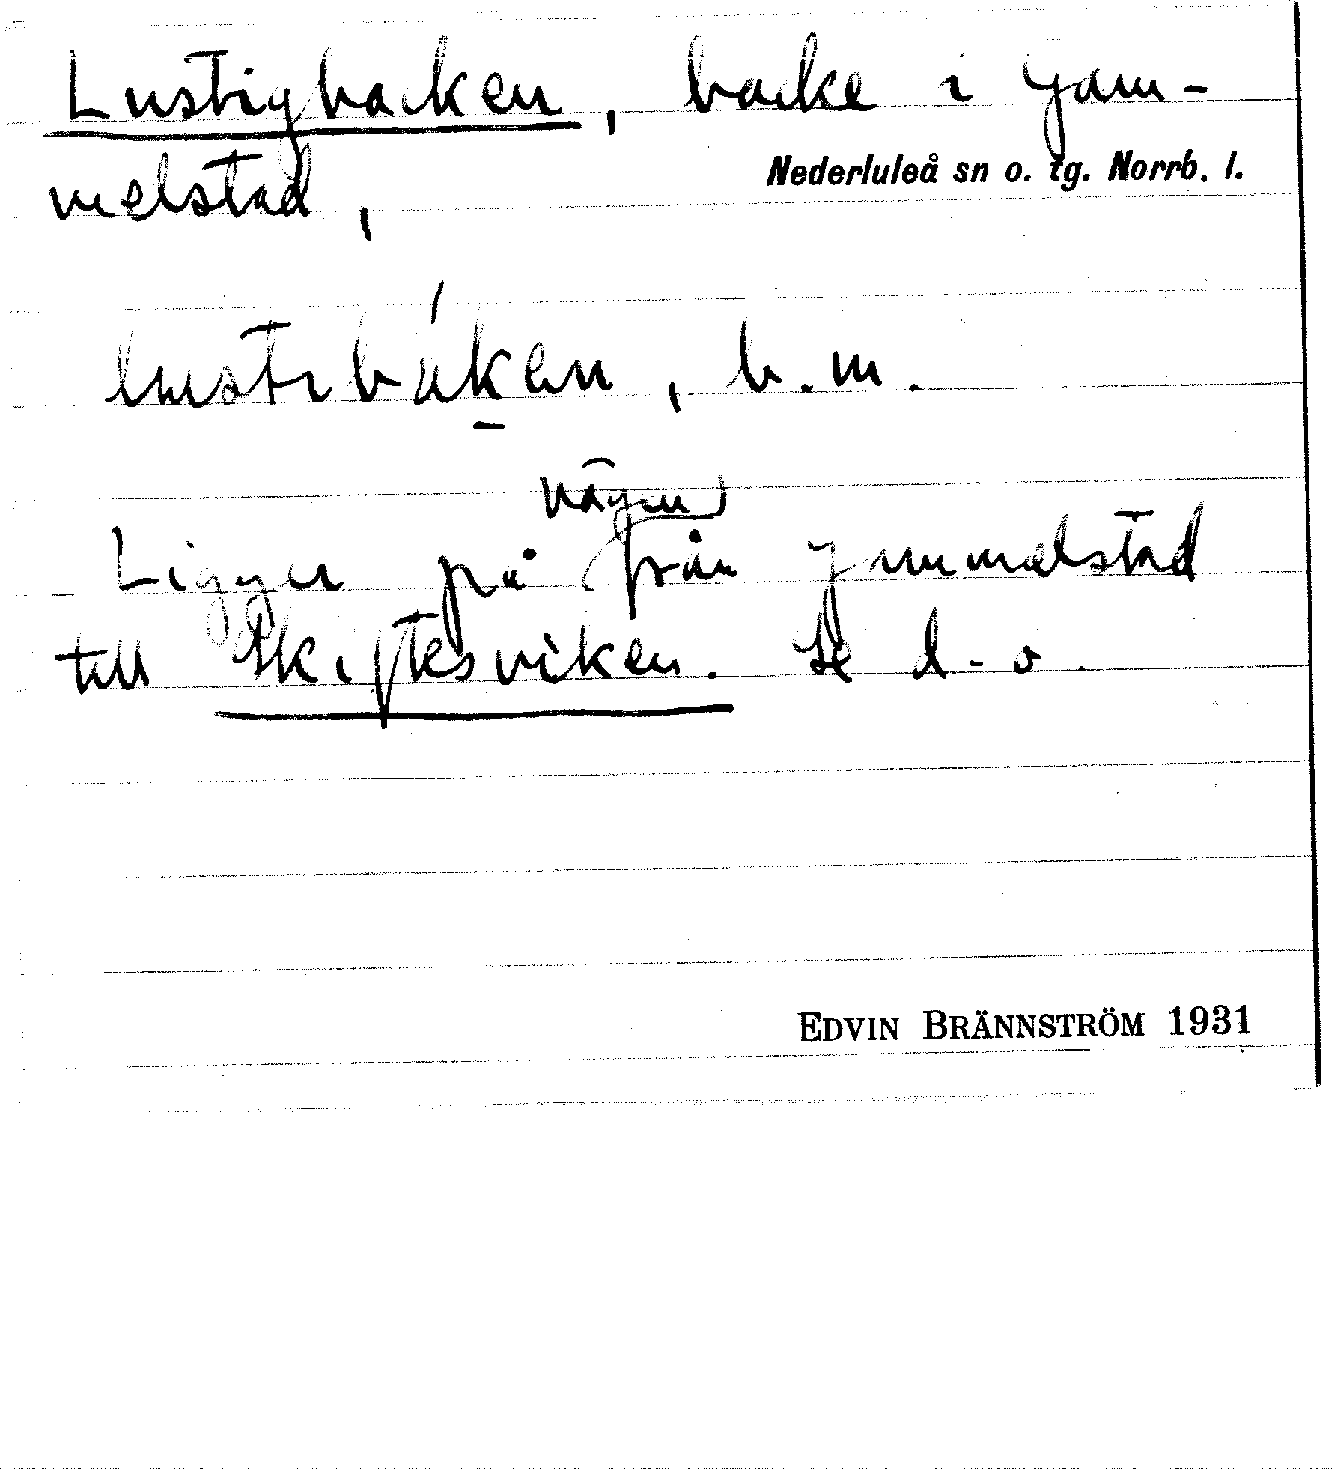 Lustigbacken, backe i Gam-
melstad,
Nederluleå sn o. tg. Norrb. l.
lustibáken, b.m.
vägen
Ligger på från Gammelstad
till Skiftesviken. Se d.o.
EDVIN BRÄNNSTRÖM 1931